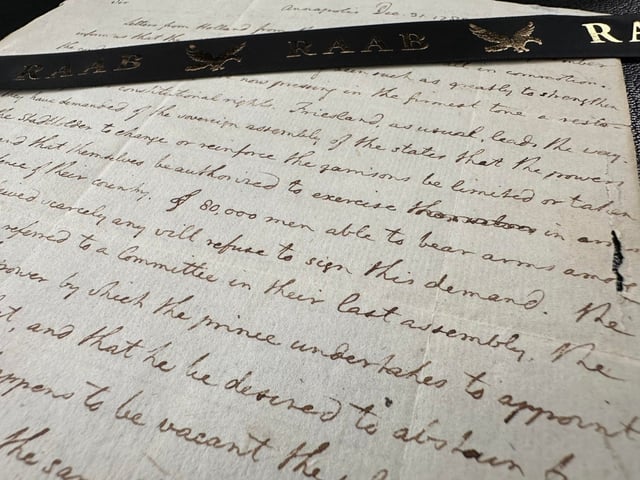 Sir
Annapolis Dec. 31. 178
letters from Holland from the
inform us that the
RAAB RAAB RA
in commotion.
such as greatly to strengthen
now pressing in the firmest tone a resto-
constitutional rights. Friesland as usual leads the way.
they have demanded of the sovereign assembly of the states that the powers
the Stadtholder to change or reinforce the garrisons be limited or taken
and that themselves be authorized to exercise in arms
of their country. Of 80,000 men able to bear arms among
scarcely any will refuse to sign this demand. The
referred to a Committee in their last assembly. The
power by which the prince undertakes to appoint
, and that he be desired to abstain
happens to be vacant the
the same